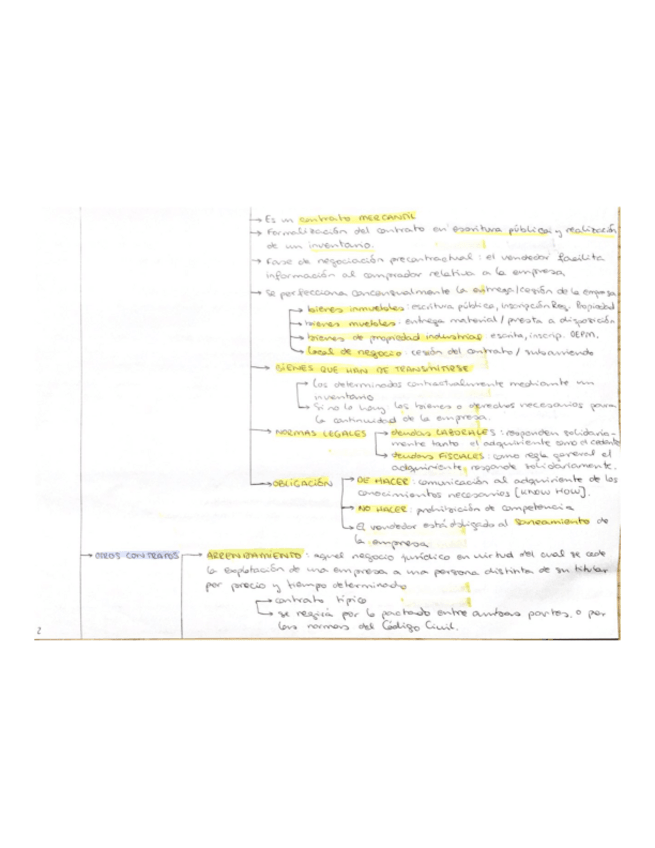 → Es un contrato MERCANTIL
→ Formalización del contrato en escritura pública y realización
de un inventario.
→ Fase de negociación precontractual: el vendedor facilita
información al comprador relativa a la empresa
→ Se perfecciona con la entrega/cesión de la empresa
→ bienes inmuebles: escritura pública, inscripción Reg. Propiedad
→ bienes muebles: entrega material / puesta a disposición
→ bienes de propiedad industrial: escrita, inscrip. OEPM.
→ Local de negocio: cesión del contrato / subarriendo
→ BIENES QUE HAN DE TRANSMITIRSE
→ Los determinados contractualmente mediante un
inventario
→ Si no lo hay, los bienes o derechos necesarios para
la continuidad de la empresa.
→ NORMAS LEGALES → deudas LABORALES: responden solidaria-
mente tanto el adquiriente como el cedente
→ deudas FISCALES: como regla general el
adquiriente, responde solidariamente.
→ OBLIGACIÓN → DE HACER: comunicación al adquiriente de los
conocimientos necesarios [KNOW HOW].
→ NO HACER: prohibición de competencia
→ El vendedor está obligado al saneamiento de
la empresa
→ OTROS CONTRATOS → ARRENDAMIENTO: aquel negocio jurídico en virtud del cual se cede
la explotación de una empresa a una persona distinta de su titular
por precio y tiempo determinado
→ contrato típico
→ se regirá por lo pactado entre ambas partes, o por
las normas del Código Civil.
2